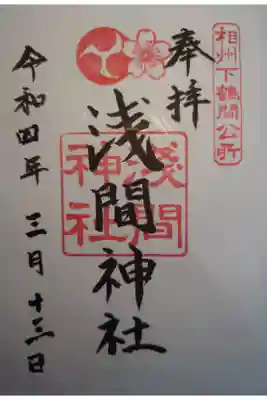 相州下鶴間公所
奉拝
浅間神社
浅間神社
令和四年三月十三日